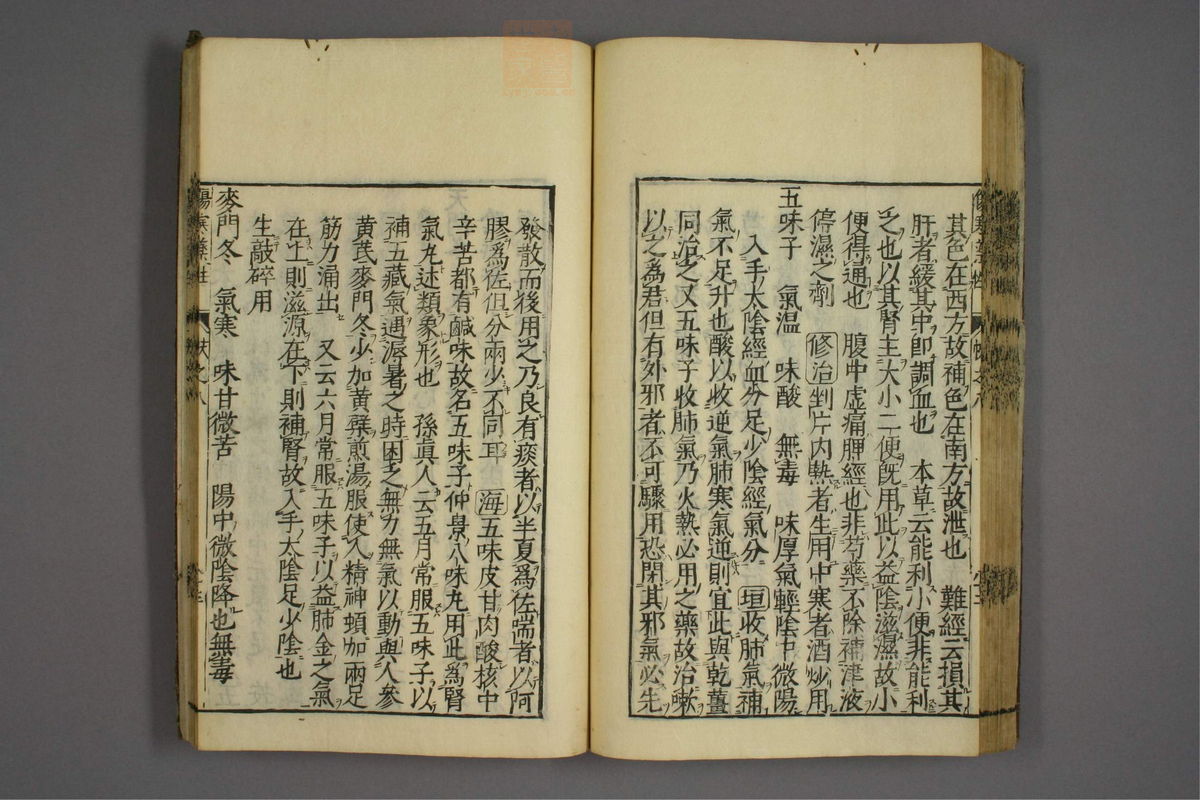 其色在西方故補色在南方故泄也　難經云損其
肝者緩其中即調血也　本草云能利小便非能利
之也以其腎主大小二便既用此以益陰滋濕故小
便得通也　腹中虚痛脾經也非芍藥不除補津液
停濕之劑　修治剉片内熱者生用中寒者酒炒用
五味子　氣温　味酸　無毒　味厚氣輕陰中微陽
入手太陰經血分足少陰經氣分　垣收肺氣補
氣不足升也酸以收逆氣肺寒氣逆則宜此與乾薑
同治之又五味子收肺氣乃火熱必用之藥故治嗽
以之爲君但有外邪者不可驟用恐閉其邪氣必先
發散而後用之乃良有痰者以半夏爲佐喘者以阿
膠爲佐但分兩少不同耳　海五味皮甘肉酸核中
辛苦都有鹹味故名五味子仲景八味丸用此爲腎
氣丸述類象形也　孫眞人云五月常服五味子以
補五藏氣遇溽暑之時困乏無力無氣以動與人參
黄芪麥門冬少加黄蘗煎湯服使人精神頓加兩足
筋力涌出　又云六月常服五味子以益肺金之氣
在上則滋源在下則補腎故入手太陰足少陰也
生敲碎用
麥門冬　氣寒　味甘微苦　陽中微陰降也無毒